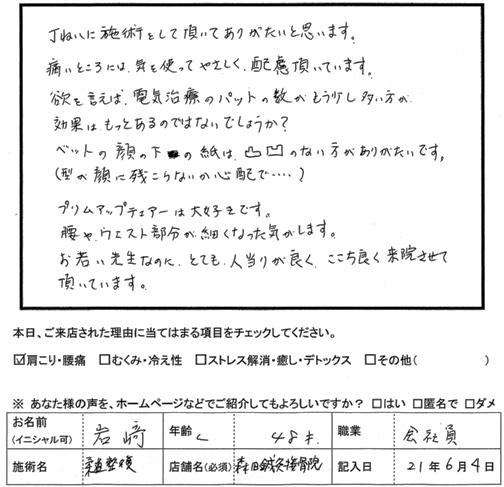 丁ねいに施術をして頂いてありがたいと思います。
痛いところには、気を使ってやさしく、配慮頂いています。
欲を言えば、電気治療のパットの数がもう少し多い方が、
効果は、もっとあるのではないでしょうか?
ベットの顔の下の紙は、凸凹のない方がありがたいです。
(型が顔に残こらないか心配で‥‥?)
プリムアップチェアーは大好きです。
腰や、ウエスト部分が細くなった気がします。
お若い先生なのに、とても、人当りが良く、ここち良く来院させて
頂いています。
本日、ご来店された理由に当てはまる項目をチェックしてください。
☑肩こり・腰痛 □むくみ・冷え性 □ストレス解消・癒し・デトックス □その他( )
※ あなた様の声を、ホームページなどでご紹介してもよろしいですか? □はい □匿名で □ダメ
お名前 (イニシャル可) 岩﨑 年齢 48才 職業 会社員
施術名 柔整復 店舗名(必須) 森田鍼灸接骨院 記入日 21年6月4日